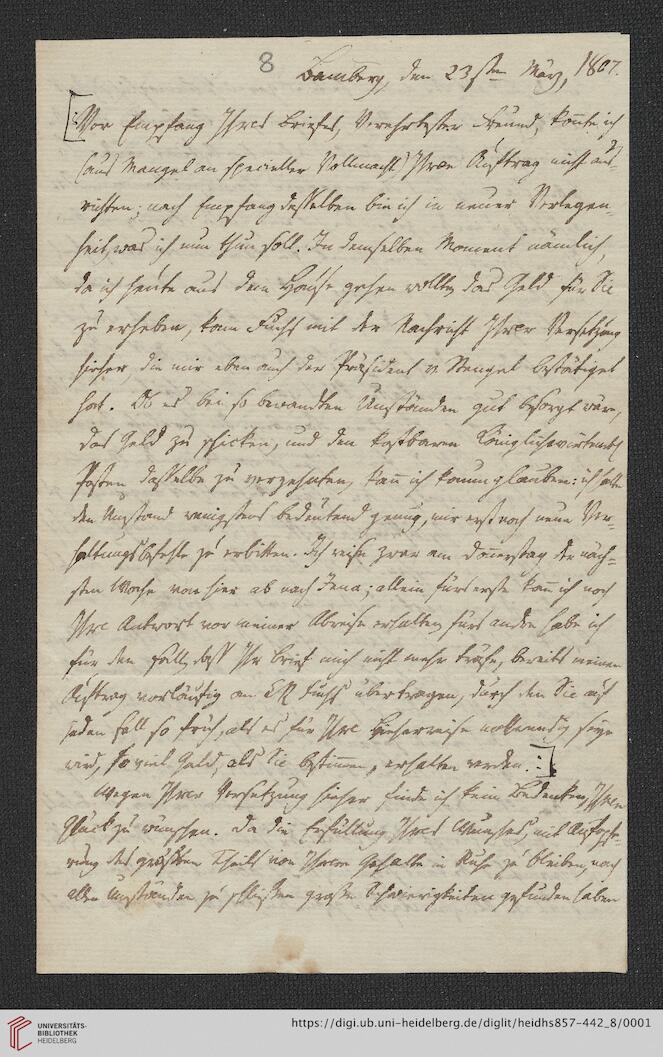 8
Bamberg, den 23sten März, 1807.
[: Vor Empfang Ihres Briefes, Verehrtester Freund, konnte ich
(aus Mangel an specieller Vollmacht) Ihren Auftrag nicht aus-
richten; nach Empfang desselben bin ich in neuer Verlegen-
heit, was ich nun thun soll. In demselben Moment nämlich,
da ich heute aus dem Hause gehen wollte, das Geld für Sie
zu erheben, kam Fuchs mit der Nachricht Ihrer Versetzung
hieher, die mir eben auch der Präsident v Stengel bestätiget
hat. Ob es bei so bewandten Umständen gut besorgt wäre,
das Geld zu schicken, und den kostbaren Königlichwürtemb
Posten dasselbe zu verzehnten, kann ich kaum glauben: ich halte
den Umstand wenigstens bedeutend genug, mir erst noch neue Ver-
haltungsbefehle zu erbitten. Ich reise zwar am Donnerstag der näch-
sten Woche von hier ab nach Jena; allein fürs erste kann ich noch
Ihre Antwort vor meiner Abreise erhalten, fürs andre habe ich
für den Fall, daß Ihr Brief mich nicht mehr träfe, bereits meinen
Auftrag vorläufig an Fuchs übertragen, durch den Sie auf
jeden Fall so früh, als es für Ihre Hieherreise nothwendig seyn
wird, so viel Geld, als Sie bestimmen, erhalten werden. :]
Wegen Ihrer Versetzung hieher finde ich kein Bedenken, Ihnen
Glück zu wünschen. Da die Erfüllung Ihres Wunsches, mit Aufopfe-
rung des größten Theils von Ihrem Gehalte in Ruhe zu bleiben, nach
allen Umständen zu schließen große Schwierigkeiten gefunden haben
UNIVERSITÄTS-
BIBLIOTHEK
HEIDELBERG
https://digi.ub.uni-heidelberg.de/diglit/heidhs857-442_8/0001